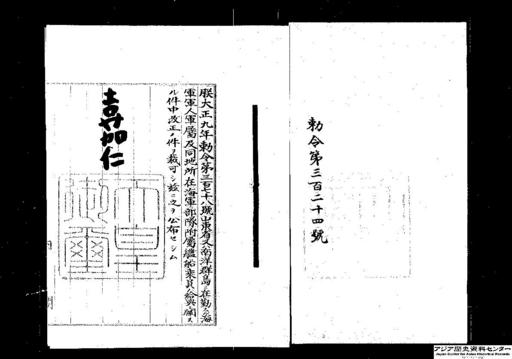 勅令第三百二十四號
朕大正九年勅令第三百七十八號山東省又南洋群島ニ在勤スル海
軍軍人軍屬及同地所在海軍部隊附屬艦船乘員ノ給與ニ關ス
ル件中改正ノ件ヲ裁可シ茲ニ之ヲ公布セシム
嘉仁
天皇
御璽
アジア歴史資料センター
Japan Center for Asian Historical Records